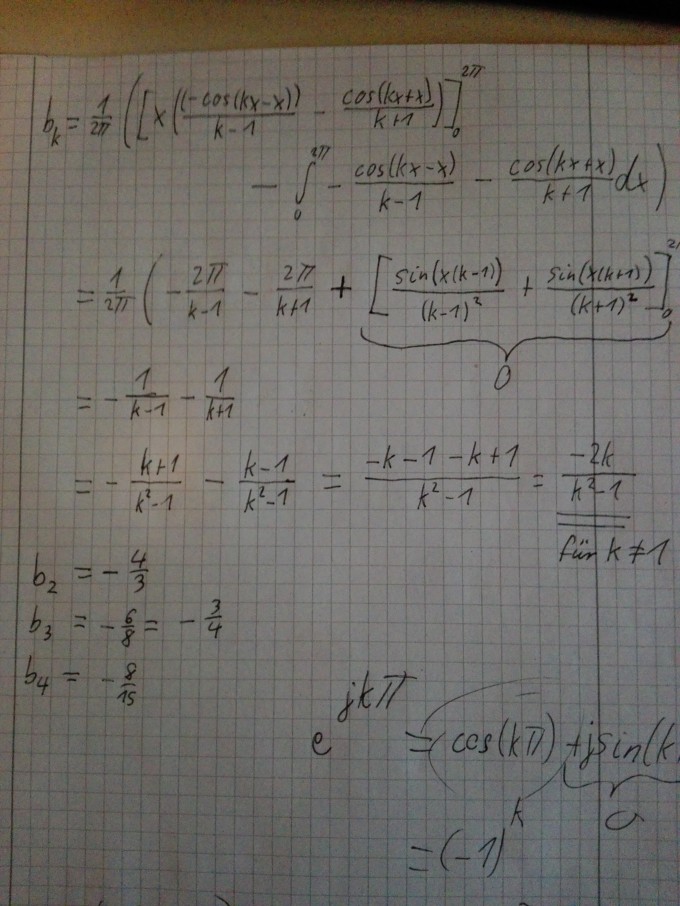 b_k = 1/2π ([x((-cos(kx-x))/(k-1) - cos(kx+x)/(k+1))]_0^2π
- ∫_0^2π - cos(kx-x)/(k-1) - cos(kx+x)/(k+1) dx)
= 1/2π (- 2π/(k-1) - 2π/(k+1) + [sin(x(k-1))/(k-1)² + sin(x(k+1))/(k+1)²]_0^2π
0
= - 1/(k-1) - 1/(k+1)
= - (k+1)/(k²-1) - (k-1)/(k²-1) = (-k-1-k+1)/(k²-1) = -2k/(k²-1)
für k ≠ 1
b_2 = - 4/3
b_3 = - 6/8 = - 3/4
b_4 = - 8/15
e^jkπ = cos(kπ) + jsin(k
0
= (-1)^k